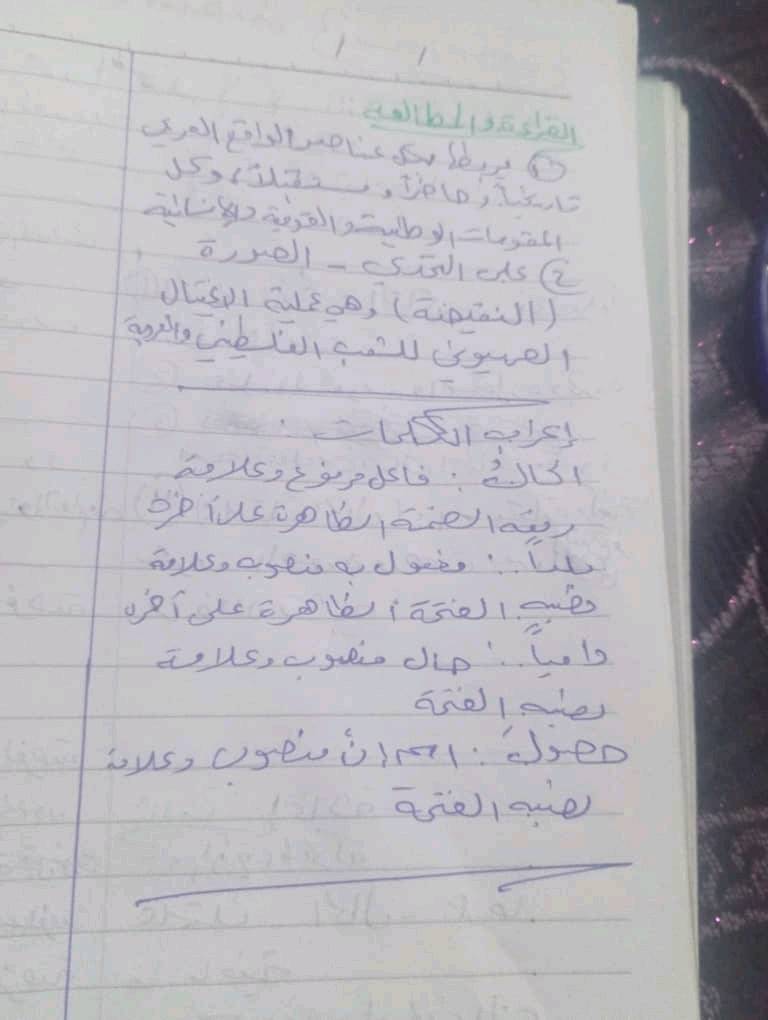 القراءة والمطالعة:
① يربطها بكل عناصر الواقع العربي
تاريخياً وحاضراً ومستقبلاً، وكل
المقومات الوطنية والقومية والإنسانية
② على التحدي - الصورة
(النقيضة) وهي عملية الاغتيال
الصهيوني للشعب الفلسطيني والعربي
إعراب الكلمات:
الحالُ: فاعل مرفوع وعلامة
رفعه الضمة الظاهرة على آخره
: مفعول به منصوب وعلامة
نصبه الفتحة الظاهرة على آخره
دامياً: حال منصوب وعلامة
نصبه الفتحة
حصولَ: اسم انَّ منصوب وعلامة
نصبه الفتحة